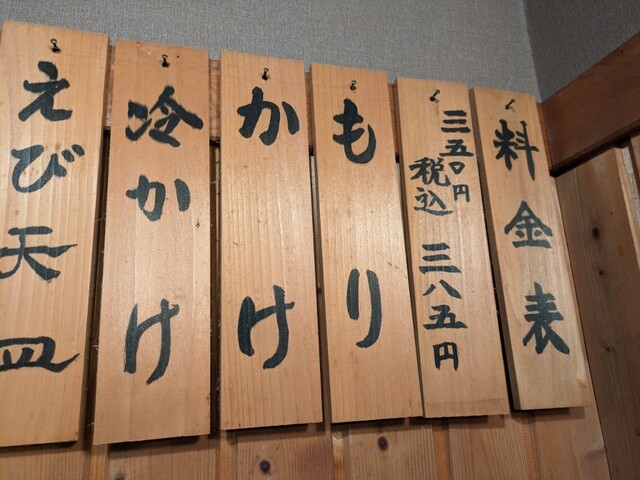 料金表
三五〇円
税込 三八五円
もり
かけ
冷かけ
えび天皿